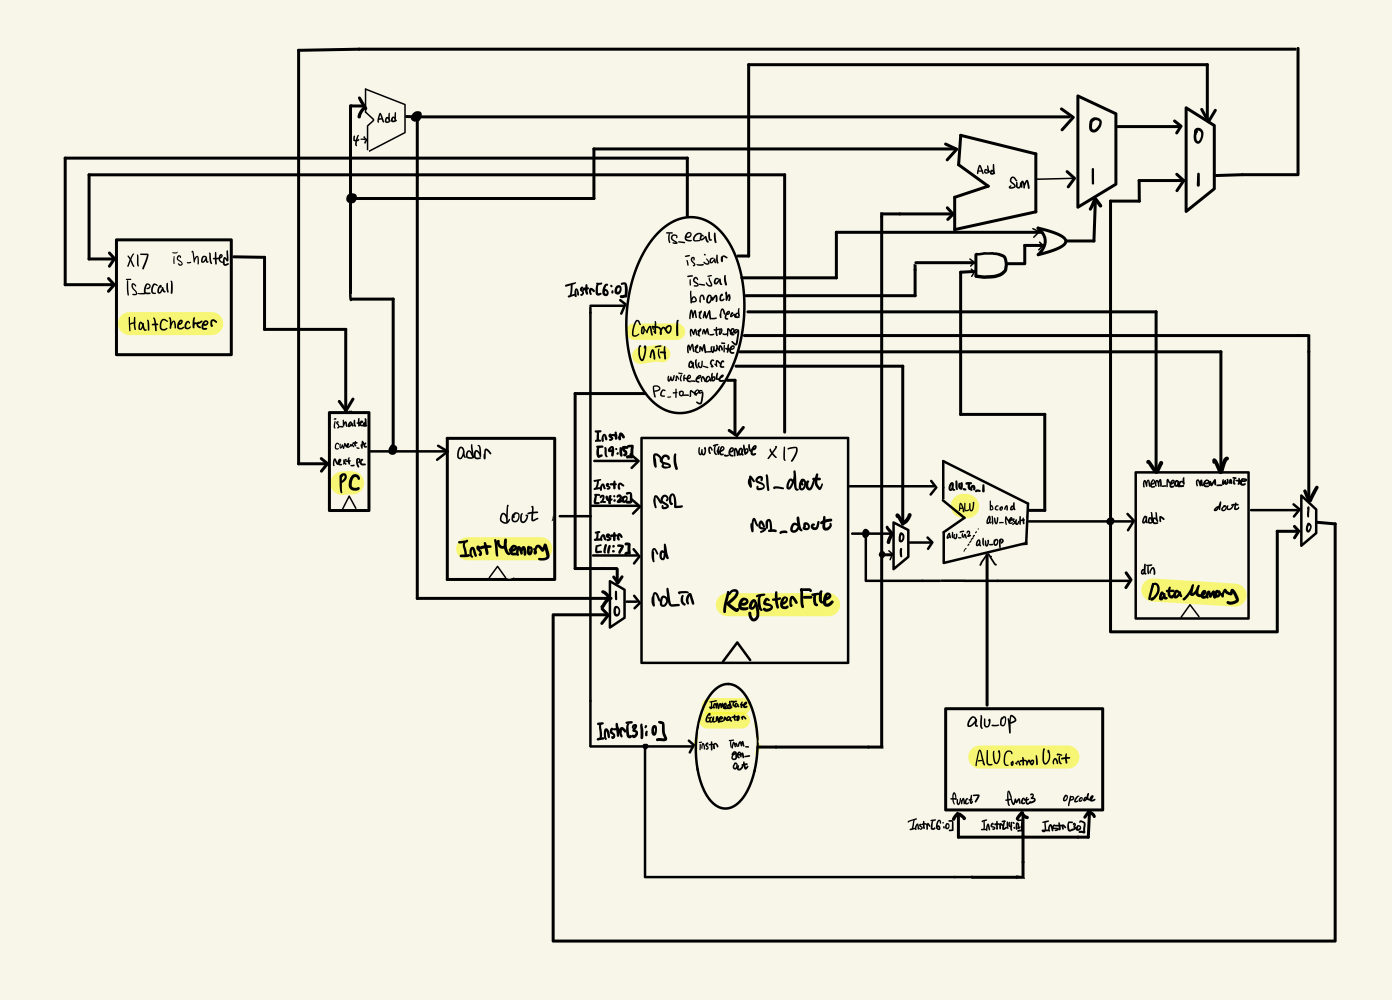 Add
4
0
1
0
1
Add
Sum
X17 is_halted
is_ecall
HaltChecker
is_ecall
is_jalr
is_jal
branch
mem_read
mem_to_reg
mem_write
alu_src
write_enable
Pc_to_reg
Control
Unit
Instr[6:0]
is_halted
current_pc
next_pc
PC
addr
dout
InstMemory
Instr
[19:15]
Instr
[24:20]
Instr
[11:7]
1
0
write_enable X17
rs1
rs2
rd
rd_in
rs1_dout
rs2_dout
RegisterFile
0
1
alu_in_1
ALU
alu_in2
bcond
alu_result
alu_op
mem_read mem_write
addr
dout
din
DataMemory
1
0
Instr[31:0]
Immediate
Generator
instr
imm_
gen_
out
alu_op
ALUControlUnit
funct7 funct3 opcode
Instr[6:0]